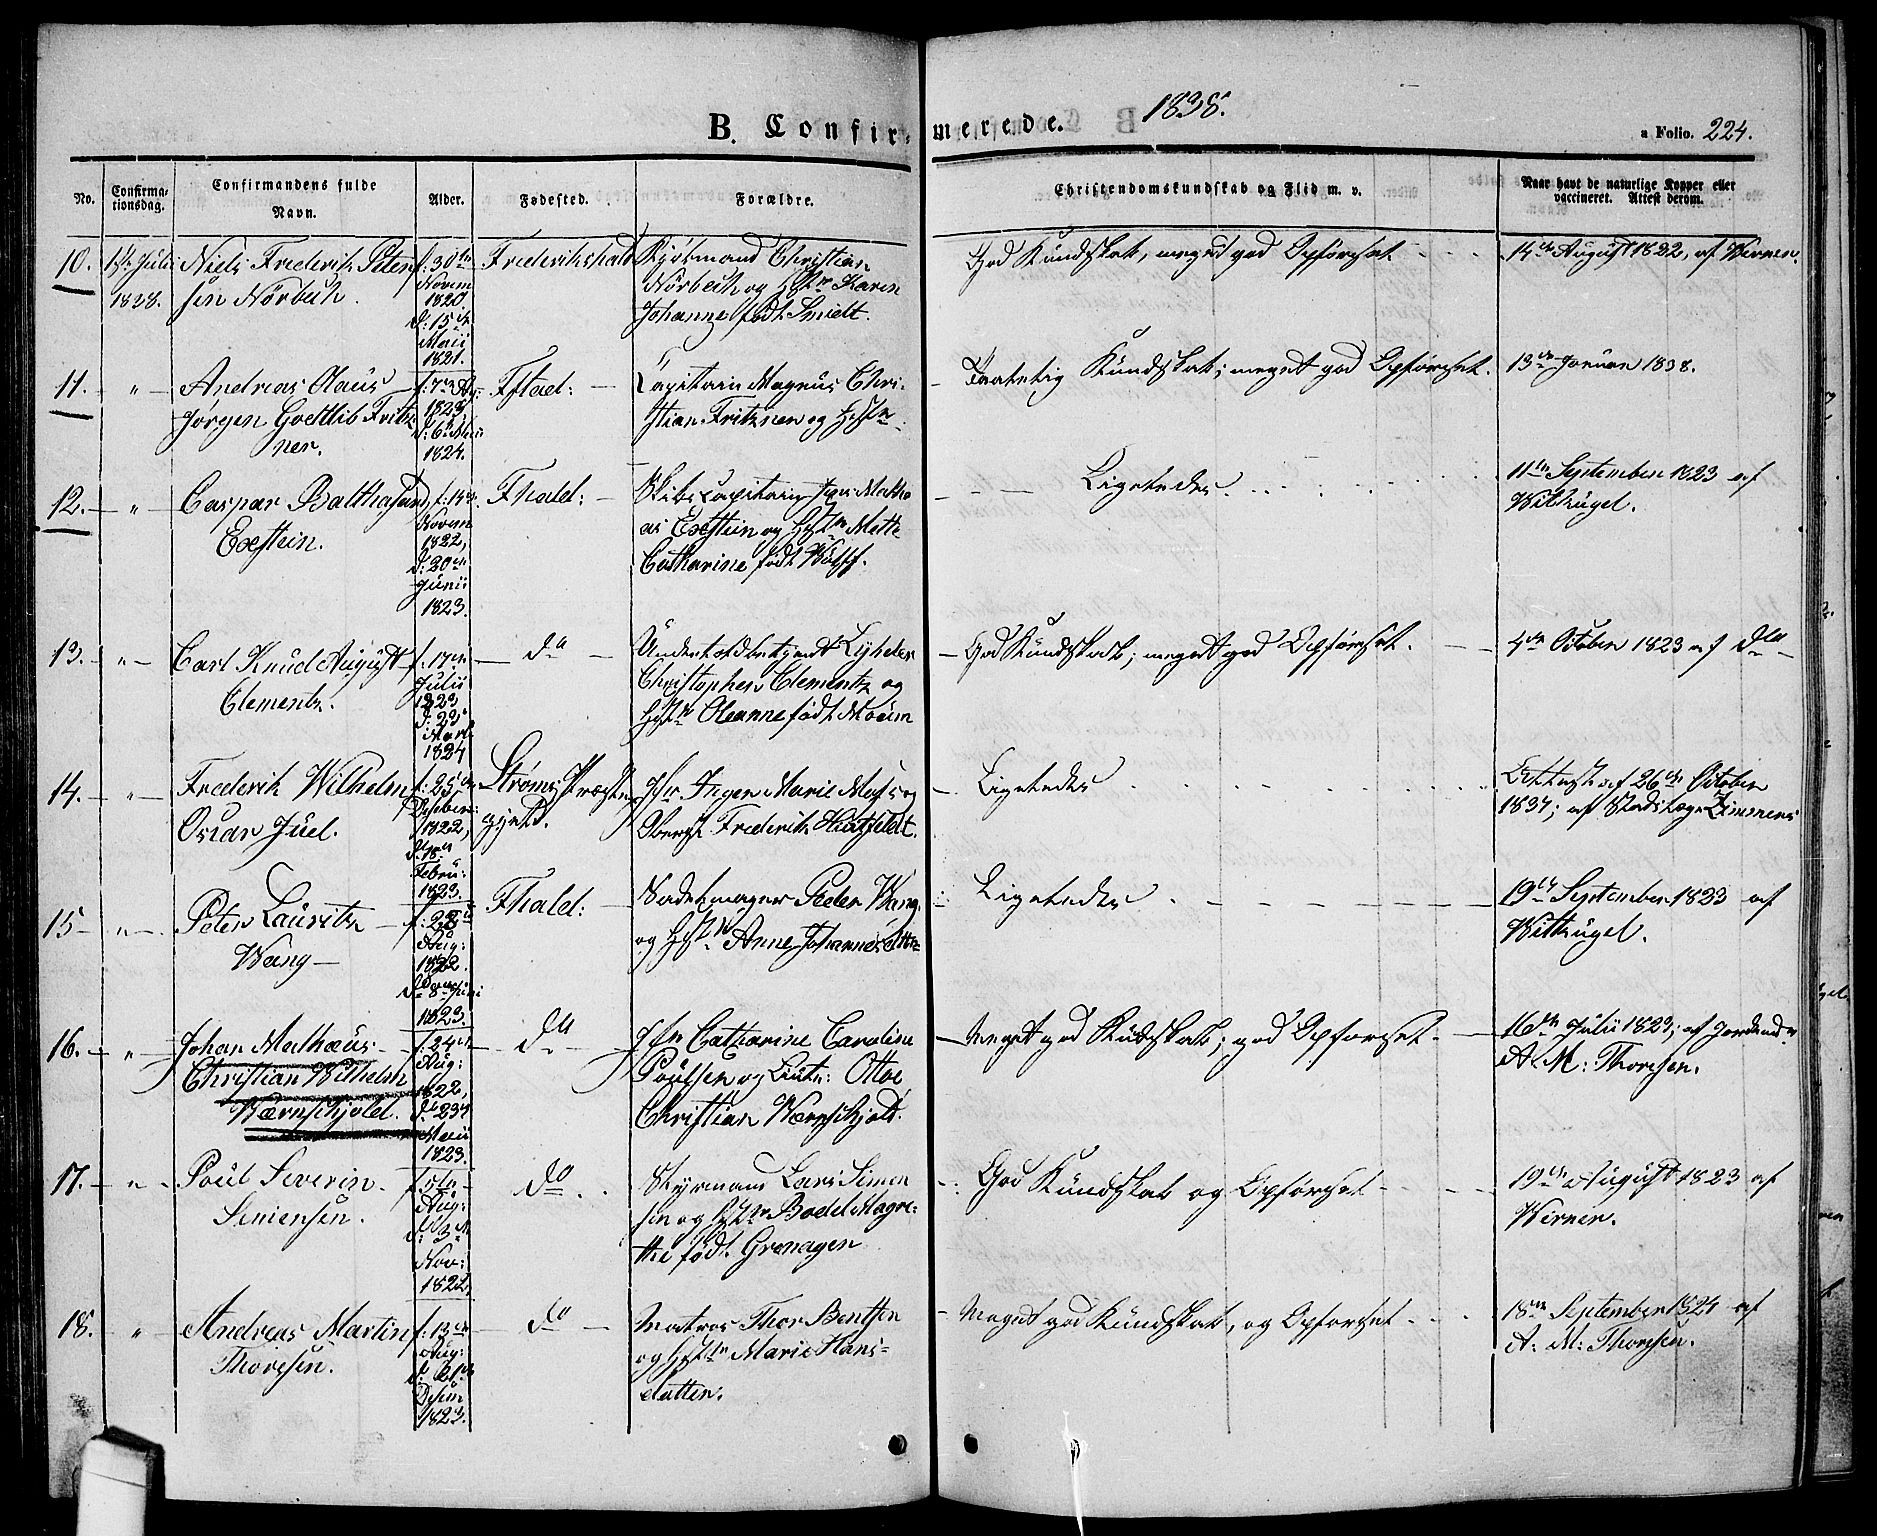 1838.
B. Confirmerede.
a Folio. 224.
No.
Confirma-
tionsdag.
Confirmandens fulde
Navn.
Alder.
Fødested.
Forældre.
Christendomskundskab og Flid m. v.
Naar havt de naturlige Kopper eller
vaccineret. Attest derom.
10.
Juli
1838.
Niels Frederik Peter-
sen Nörbech.
f: 30te
Novem
1820
d: 15de
Maii
1821.
Frederikshald
Kjøbmand Christian
Nörbech og Hstr Karen
Johanne født Smidt.
God Kundskab, meget god Opførsel
14de August 1822, af Werner.
11.
"
Andreas Olaus
Jørgen Gottlib Fritz-
ner.
f. 7de Aug:
1823
d: 6te Maii
1824.
Fhald:
Capitain Magnus Chri-
stian Fritzner og Hstr
Taalelig Kundskab; meget god Opførsel.
13de Januar 1838.
12.
"
Caspar Balthasar
Eckstein.
f: 14de
Novem
1822,
d: 20de
Junii
1823.
Fhald:
Skibscapitain Matho
as Eckstein og Hstr Mette
Catharine født Wolff.
Ligeledes
11te September 1823 af
Wittkugel.
13.
"
Carl Knud August
Clementz.
f. 17de
Julii
1823
d: 23de
Marts
1824
do
Christopher Clementz og
Hstr Oleanne født Moum
God Kundskab; meget god Opførsel.
4de October 1823 af do
14.
"
Frederik Wilhelm
Oscar Juel.
f: 25de
1822,
d. 18de
Febru:
1823.
Strøms Præste-
gjeld.
Jfr. Inger Marie Moss og
Oberst Frederik Huitfeldt.
Ligeledes
Attest af 26de October
1837; af Stadslæge Zimmers
15
"
Peter Lauritz
Wang
Aug:
1822.
d. 8de Juni
1823.
Fhald:
Sadelmager Peder Wang
og Hstr Anne Johannes
Ligeledes
19de September 1823 af
Wittkugel.
16.
"
Johan Mathæus
Christian Wilhelm
Wærnschjold.
f. 24de
Aug:
1822,
d: 23de
Maii
1823.
do
Jfr Catharine Caroline
Poulsen og Lieut: Otto
Christian Wærnschjold.
Meget god Kundskab; god Opførsel.
16de Julii 1823; af Jordmdr
A. M: Thoresen.
17.
"
Poul Severin
Simensen.
Aug:
d. 3de
Nov:
1822,
do
Styrmand Lars Simen
sen og Hstr Bodel Magre-
the født Grønagen
God Kundskab og Opførsel
19de August 1823 af
Werner.
18.
"
Andreas Martin
Thoresen.
f. 13de
Aug:
d. 21de
Decem
1823.
do
Matros Thor Bentsen
og Hstr Marie Hans-
datter.
Meget god Kundskab, og Opførsel
18de September 1824 af
A. M: Thoresen.